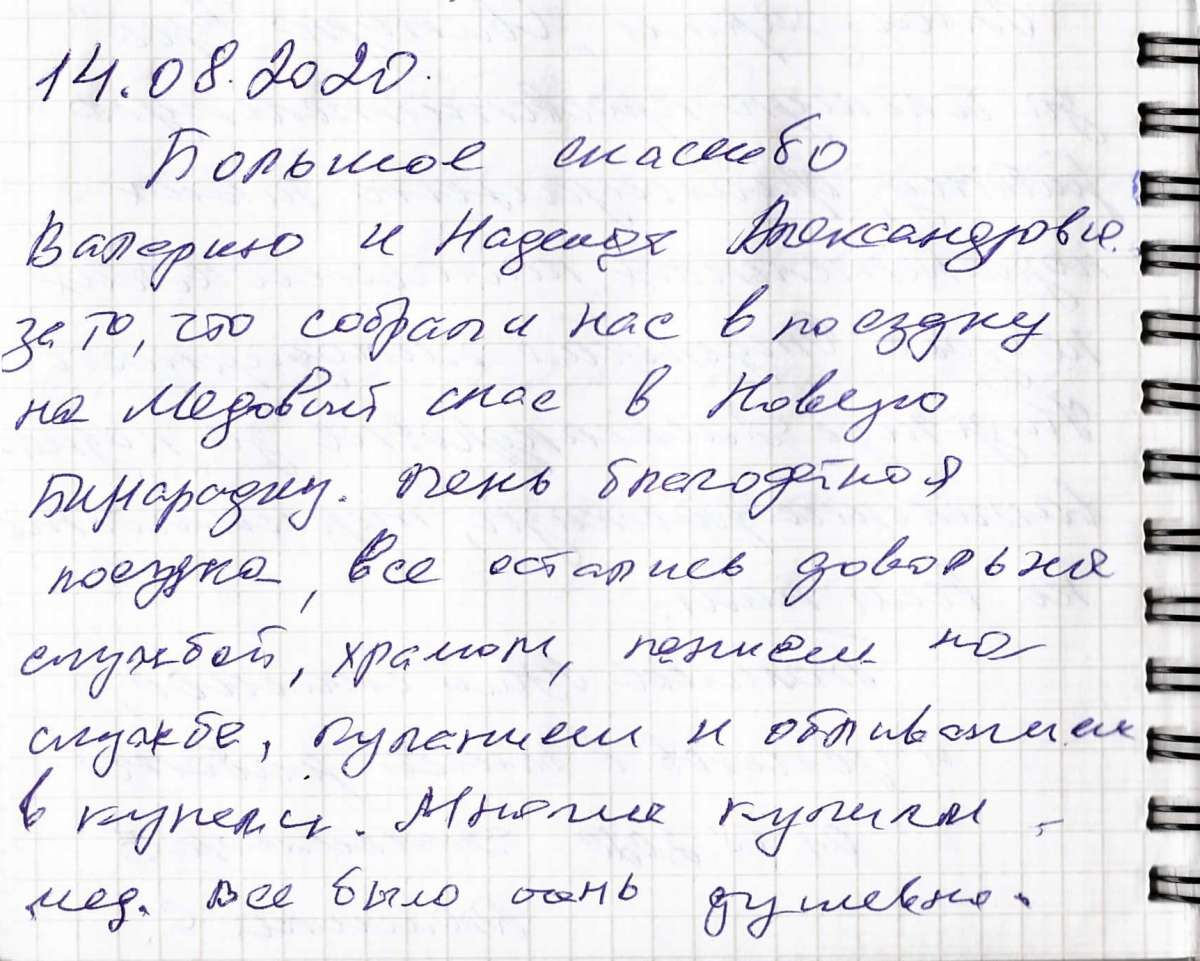 14.08.2020.
Большое спасибо
Валерию и Надежде Александровне
за то, что собрали нас в поездку
на Медовый спас в Новую
Бинарадку. Очень благодатная
поездка, все остались довольные
службой, храмом, пением на
службе, купанием и обливанием
в купели. Многие купили
мед. Все было очень душевно.